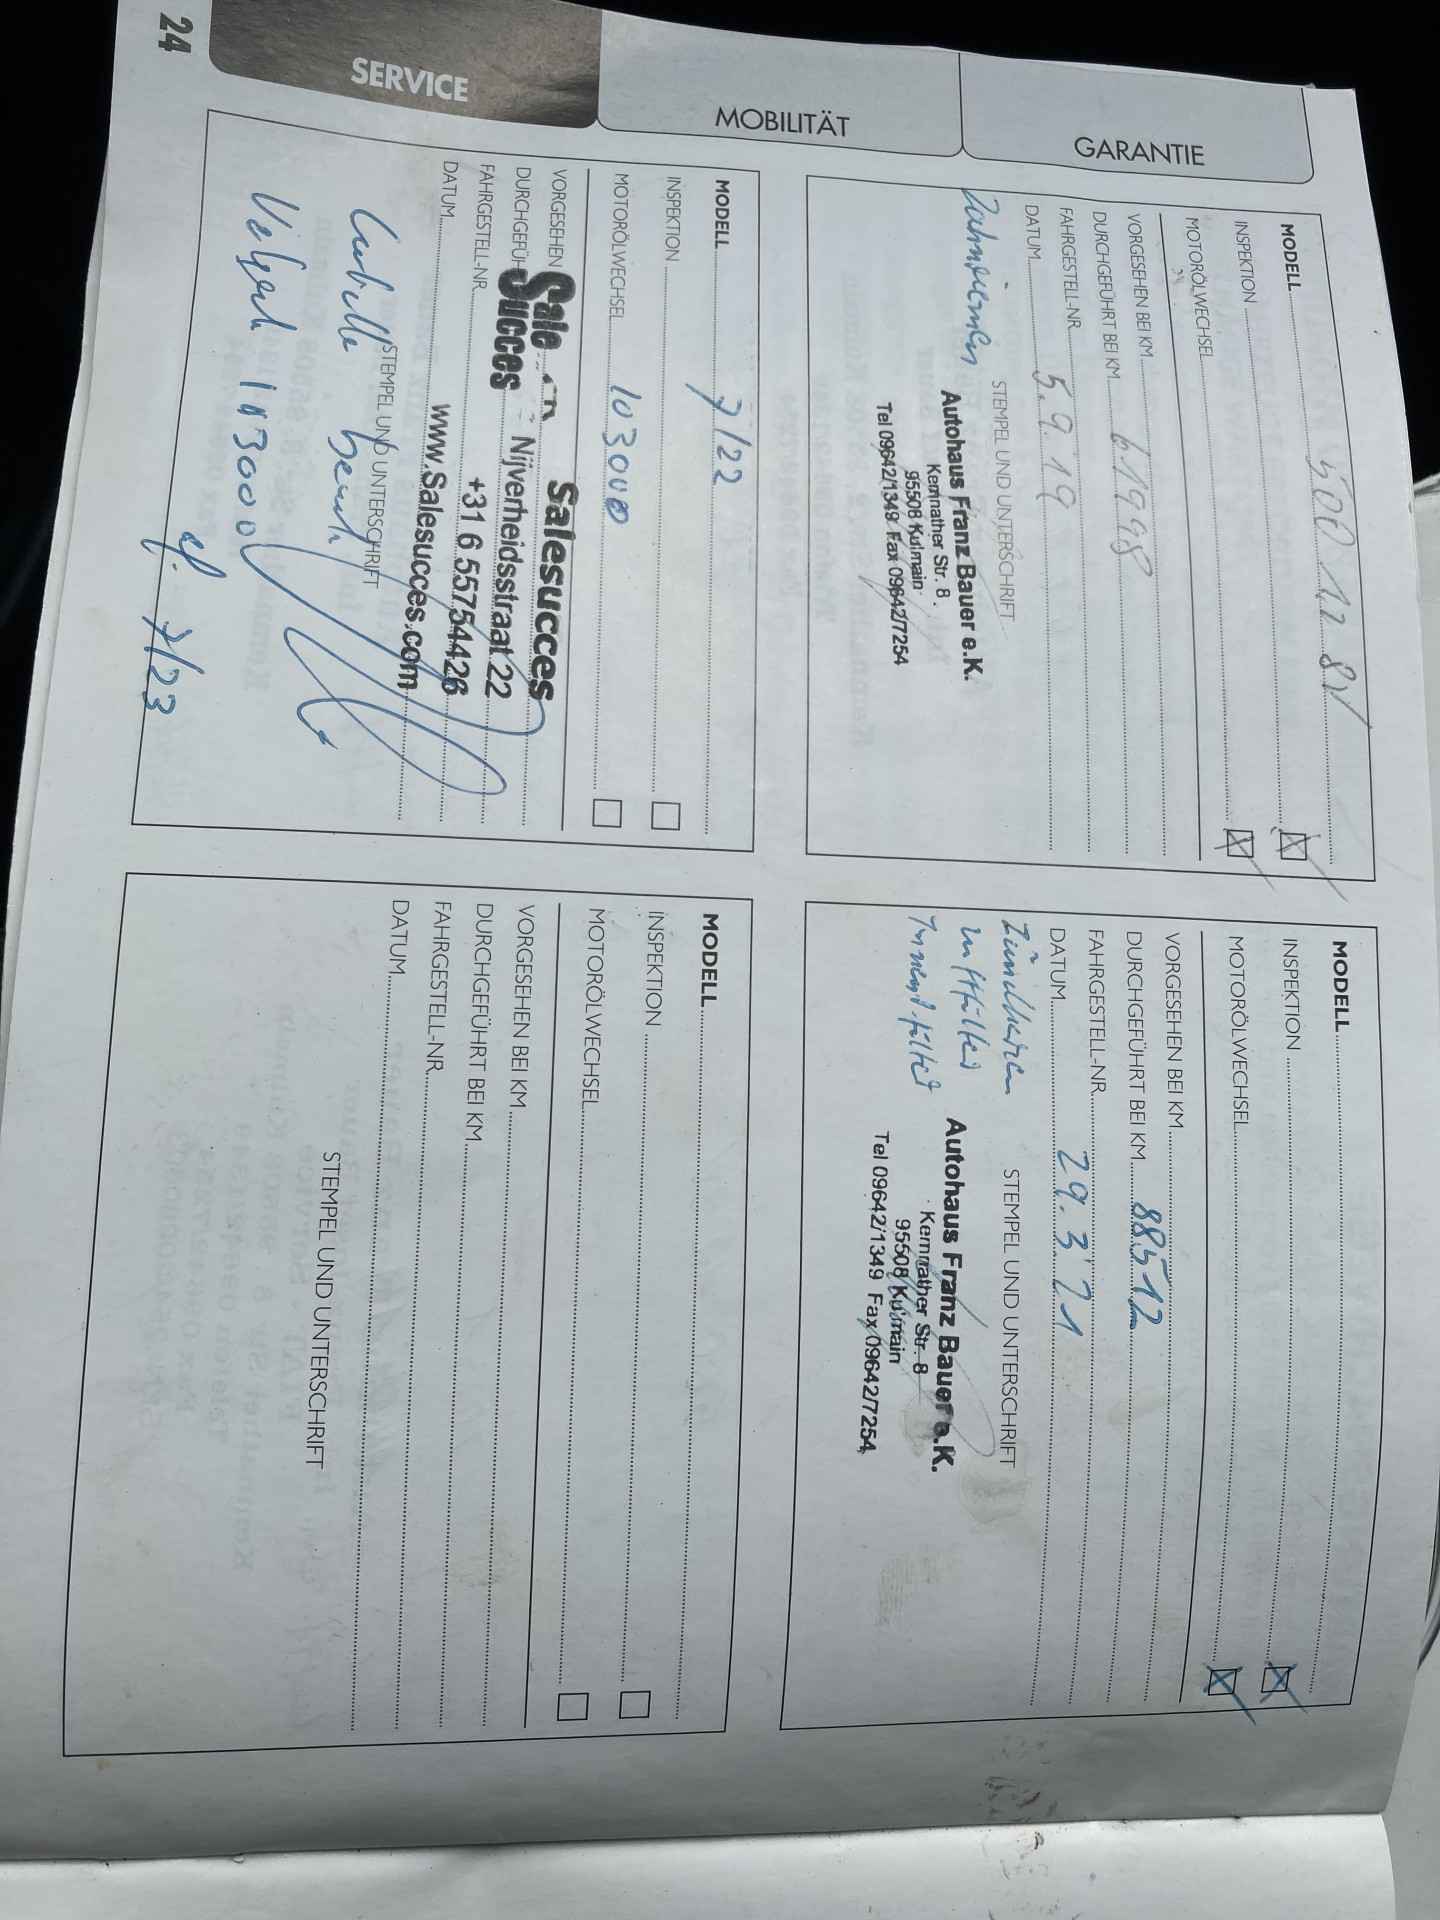 GARANTIE
MOBILITÄT
SERVICE
24
MODELL 500 1.2 8V
INSPEKTION
MOTORÖLWECHSEL
VORGESEHEN BEI KM
DURCHGEFÜHRT BEI KM 61998
FAHRGESTELL-NR.
DATUM 5.9.19
STEMPEL UND UNTERSCHRIFT
Zahnriemen
Autohaus Franz Bauer e.K.
Kemnather Str. 8
95508 Kulmain
Tel 09642/1349 Fax 09642/7254
MODELL
INSPEKTION
MOTORÖLWECHSEL
VORGESEHEN BEI KM
DURCHGEFÜHRT BEI KM 88512
FAHRGESTELL-NR.
DATUM 29.3.21
STEMPEL UND UNTERSCHRIFT
Zündkerzen
Luftfilter
Innenr.filter
Autohaus Franz Bauer e.K.
Kemnather Str. 8
95508 Kulmain
Tel 09642/1349 Fax 09642/7254
MODELL 7/22
INSPEKTION
MOTORÖLWECHSEL 103000
VORGESEHEN
Salesucces
DURCHGEFÜH
Succes
Nijverheidsstraat 22
FAHRGESTELL-NR.
+31 6 55754426
DATUM
www.Salesucces.com
STEMPEL UND UNTERSCHRIFT
7/23
MODELL
INSPEKTION
MOTORÖLWECHSEL
VORGESEHEN BEI KM
DURCHGEFÜHRT BEI KM
FAHRGESTELL-NR.
DATUM
STEMPEL UND UNTERSCHRIFT